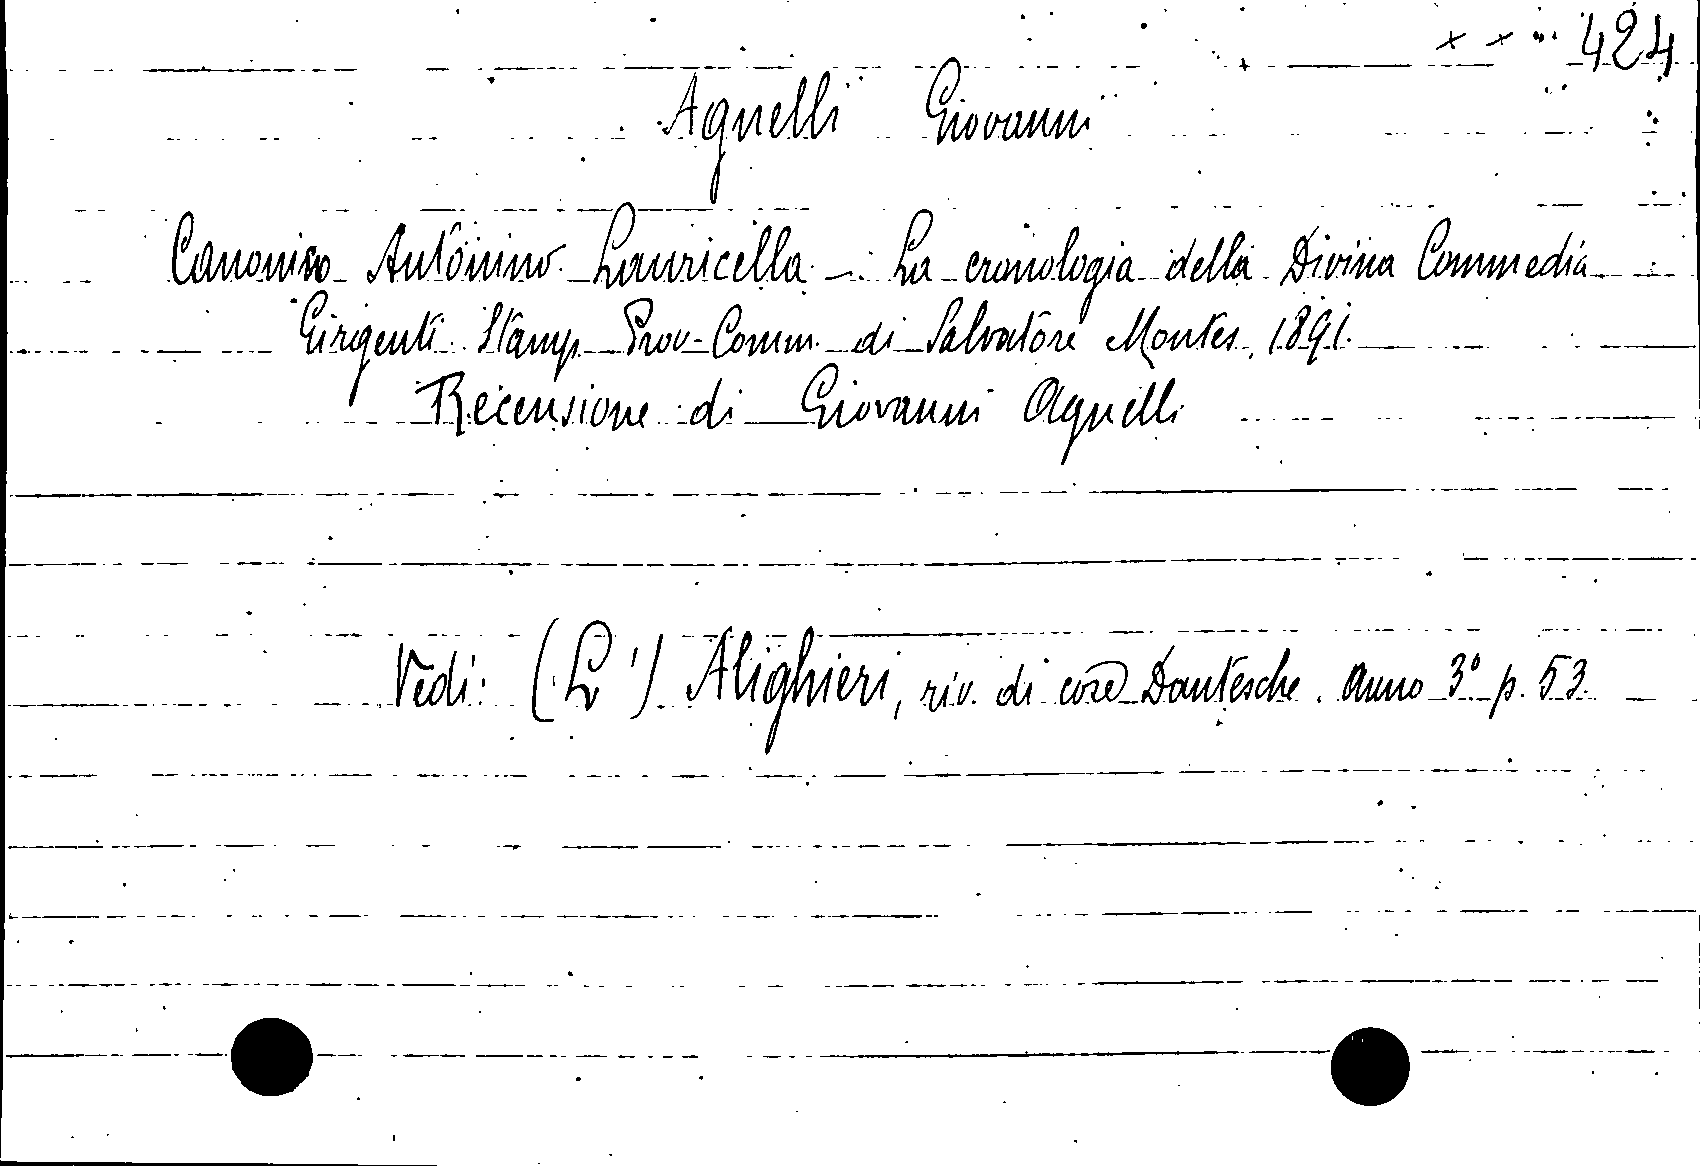 424
Agnelli Giovanni
Canonico Antonino Lauricella – La cronologia della Divina Commedia
Girgenti Stamp. Prov-Comm. di Salvatore Montes, 1891.
Recensione di Giovanni Agnelli
Vedi: (L') Alighieri, riv. di cose Dantesche. Anno 3º p. 53.